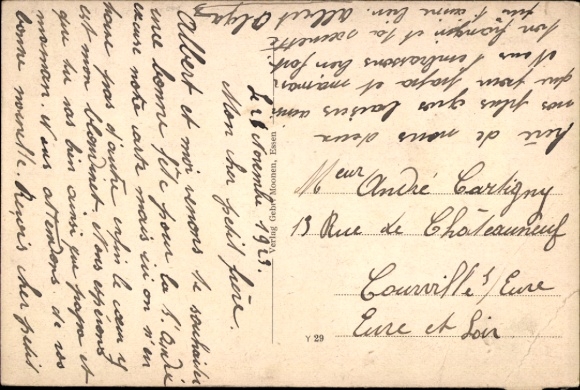 Le 28 Novembre 1923.
Mon cher petit frère.
Albert et moi venons te souhaiter
une bonne fête pour la St André
excuse notre carte mais ici on n'en
trouve pas d'autre enfin le cœur y
est mon blondinet. Nous espérons
que tu vas bien ainsi que papa et
maman. Nous attendons de vos
bonne nouvelle. Reçois cher petit
frère de nous deux
nos plus gros baisers ainsi
que pour papa et maman
Nous t'embrassons bien fort.
ton frangin et ta sœurette
qui t'aime bien. Albert
Verlag Gebr. Moonen, Essen
Mr André Cartigny
13 Rue de Châteauneuf
Courville s/ Eure
Eure et Loir
Y 29